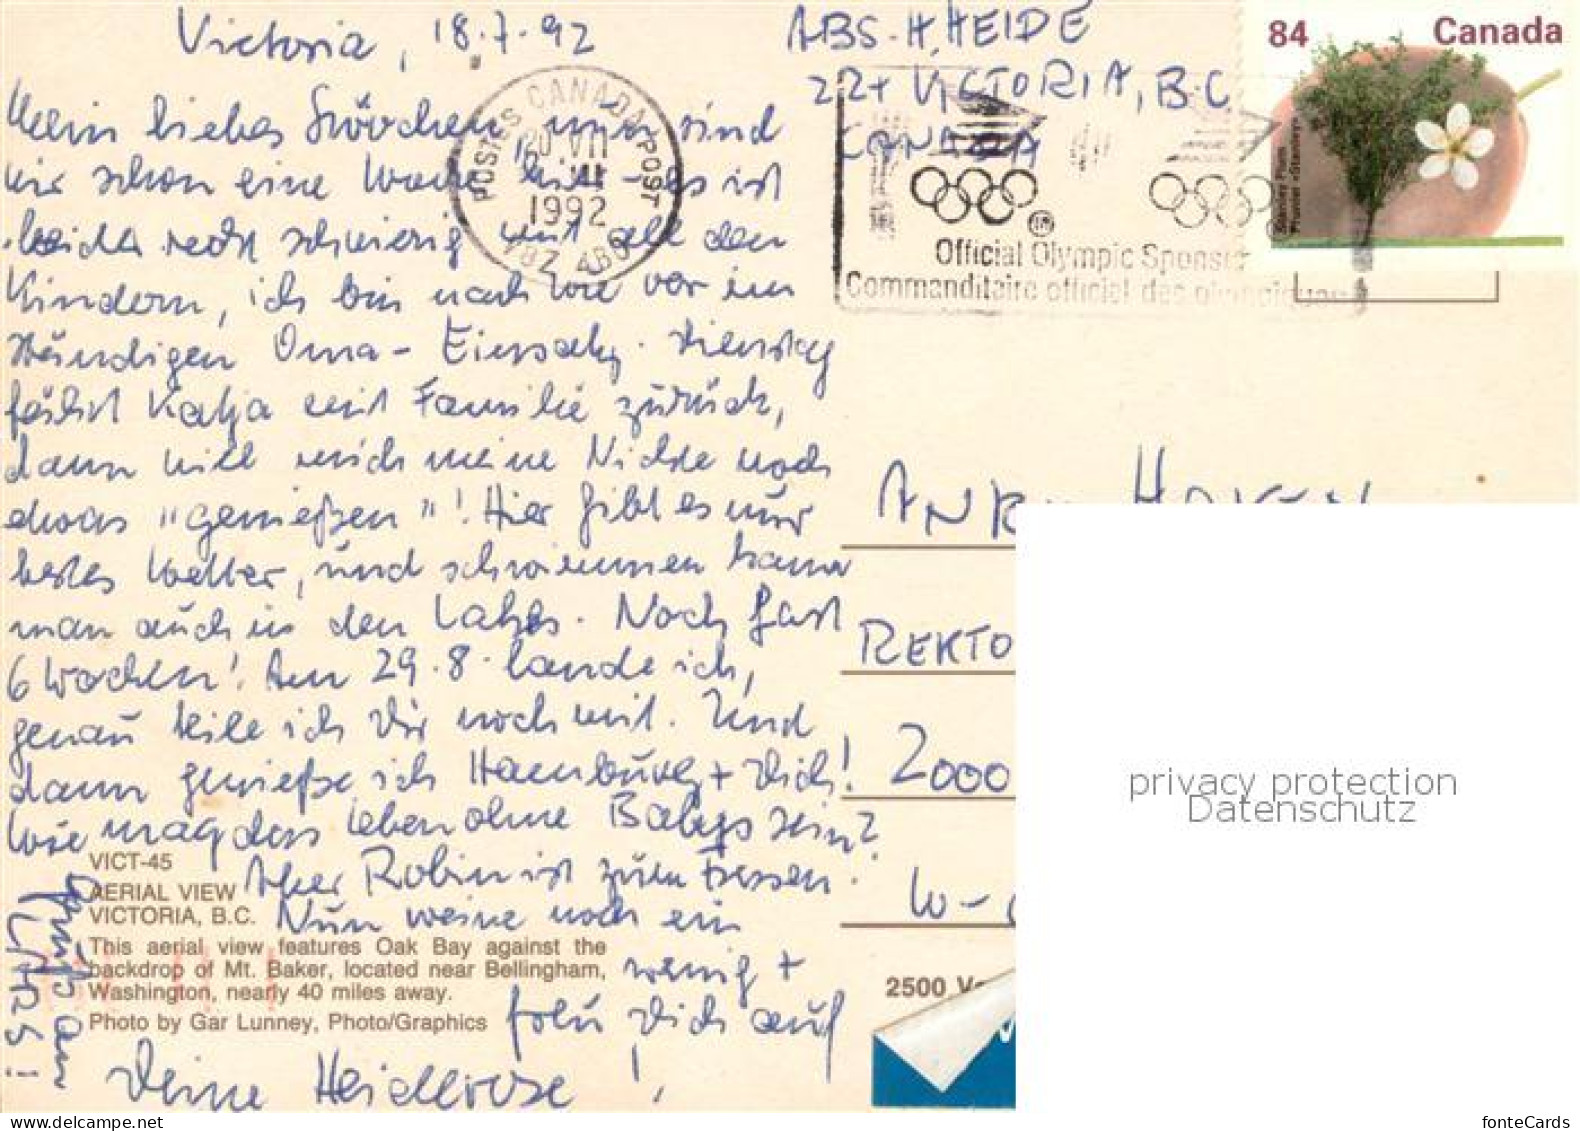 Victoria, 18.7.92
Mein liebes Störchen, nun sind
wir schon eine Woche hier – es ist
leider recht schwierig mit all den
Kindern, ich bin nach wie vor im
ständigen Oma-Einsatz. Dienstag
fährt Katja mit Familie zurück,
dann will mich meine Nichte noch
etwas "genießen"! Hier gibt es nur
bestes Wetter, und schwimmen kann
man auch in den Lakes. Noch fast
6 Wochen! Am 29.8. lande ich,
genau teile ich Dir noch mit. Und
dann genieße ich Hamburg + Dich!
Wie mag das Leben ohne Babys sein?
Aber Robin ist zum Fressen!
Nun weine noch ein
wenig +
freu Dich auf
Deine Heidelrose!
VICT-45
AERIAL VIEW
VICTORIA, B.C.
This aerial view features Oak Bay against the
backdrop of Mt. Baker, located near Bellingham,
Washington, nearly 40 miles away.
Photo by Gar Lunney, Photo/Graphics
ABS. H. HEIDE
VICTORIA, B.C.
CANADA
84 Canada
POSTES CANADA POST
20 VII
1992
Official Olympic Sponsor
Commanditaire officiel des olympiques
REKTO
2000
W-
2500
privacy protection
Datenschutz
fonteCards
delcampe.net